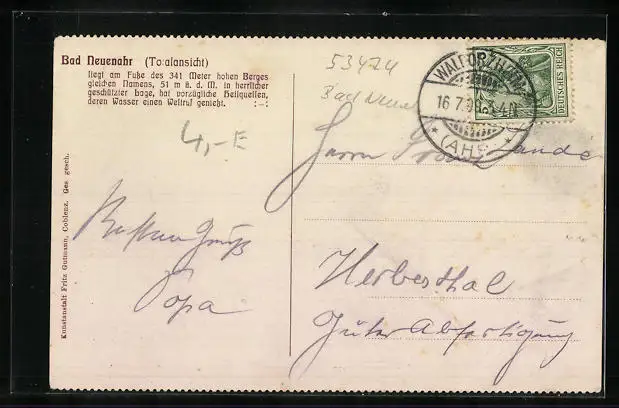 Bad Neuenahr (Totalansicht)
liegt am Fuße des 341 Meter hohen Berges
gleichen Namens, 51 m ü. d. M. in herrlicher
geschützter Lage, hat vorzügliche Heilquellen,
deren Wasser einen Weltruf genießt. :–:
4,-E
Besten Gruß
Papa
Kunstanstalt Fritz Gutmann, Coblenz. Ges. gesch.
53474
Bad Neuen
WALPORZHEIM
16 7 09 3-4 N
* (AHR) *
DEUTSCHES REICH
Herrn
Herbesthal
Güter Abfertigung